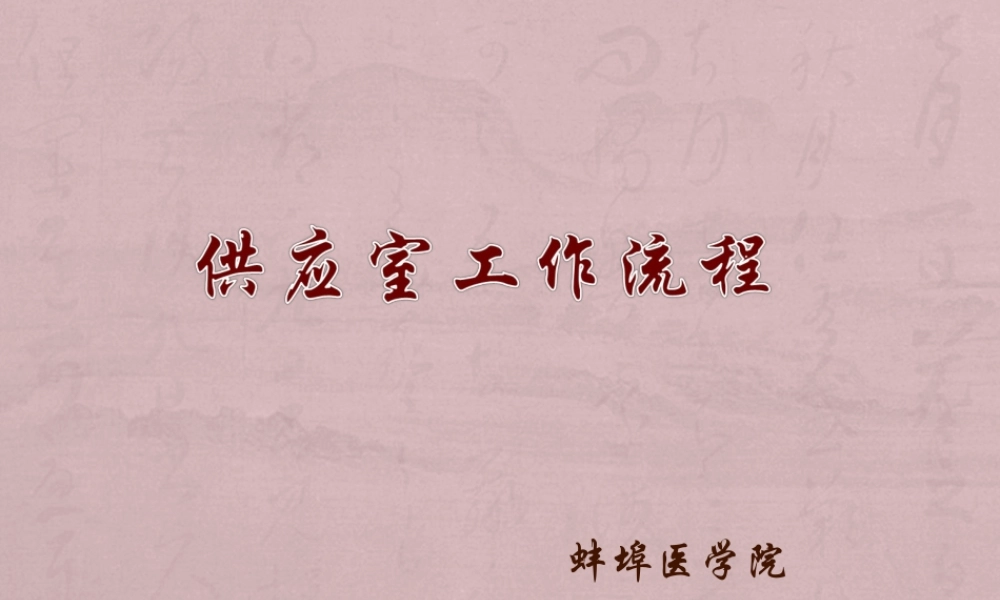 供应室工作流程
蚌埠医学院